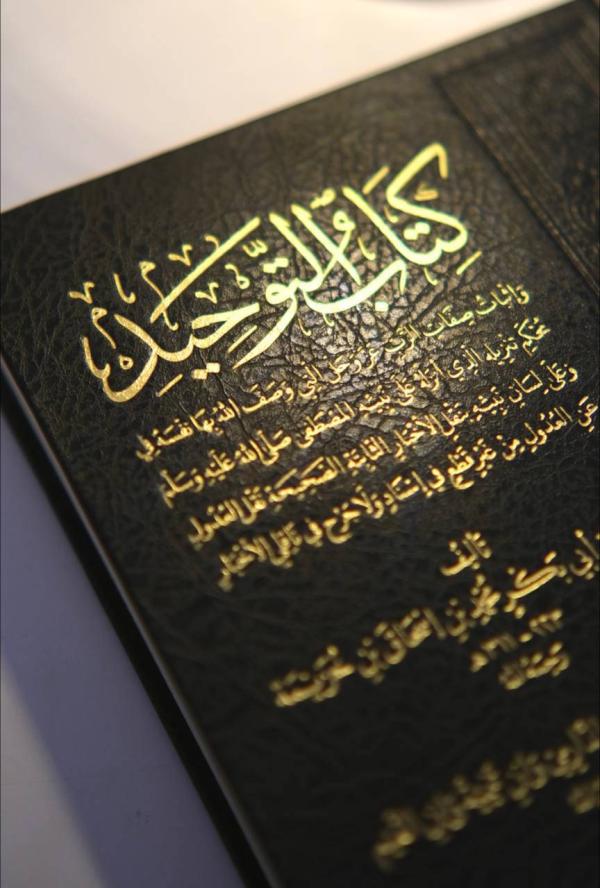 كِتَابُ التَّوْحِيدِ
وَإثبَاتُ صِفَاتِ الرَّبِّ عَزَّ وَجَلَّ الَّتِي وَصَفَ اللهُ بِهَا نَفْسَهُ فِي
مُحْكَمِ تَنْزِيلِهِ الَّذِي أَنْزَلَهُ عَلَى نَبِيِّهِ المُصْطَفَى صَلَّى اللهُ عَلَيْهِ وَسَلَّمَ
وَعَلَى لِسَانِ نَبِيِّهِ بِنَقْلِ الأَخْبَارِ الثَّابِتَةِ الصَّحِيحَةِ نَقْلَ العُدُولِ
عَنِ العُدُولِ مِنْ غَيْرِ قَطْعٍ فِي إِسْنَادٍ وَلَا جَرْحٍ فِي نَاقِلِي الأَخْبَارِ
تَأليف
أبي بَكْرٍ مُحَمَّدِ بْنِ إِسْحَاقَ بْنِ خُزَيْمَةَ
٢٢٣ - ٣١١هـ